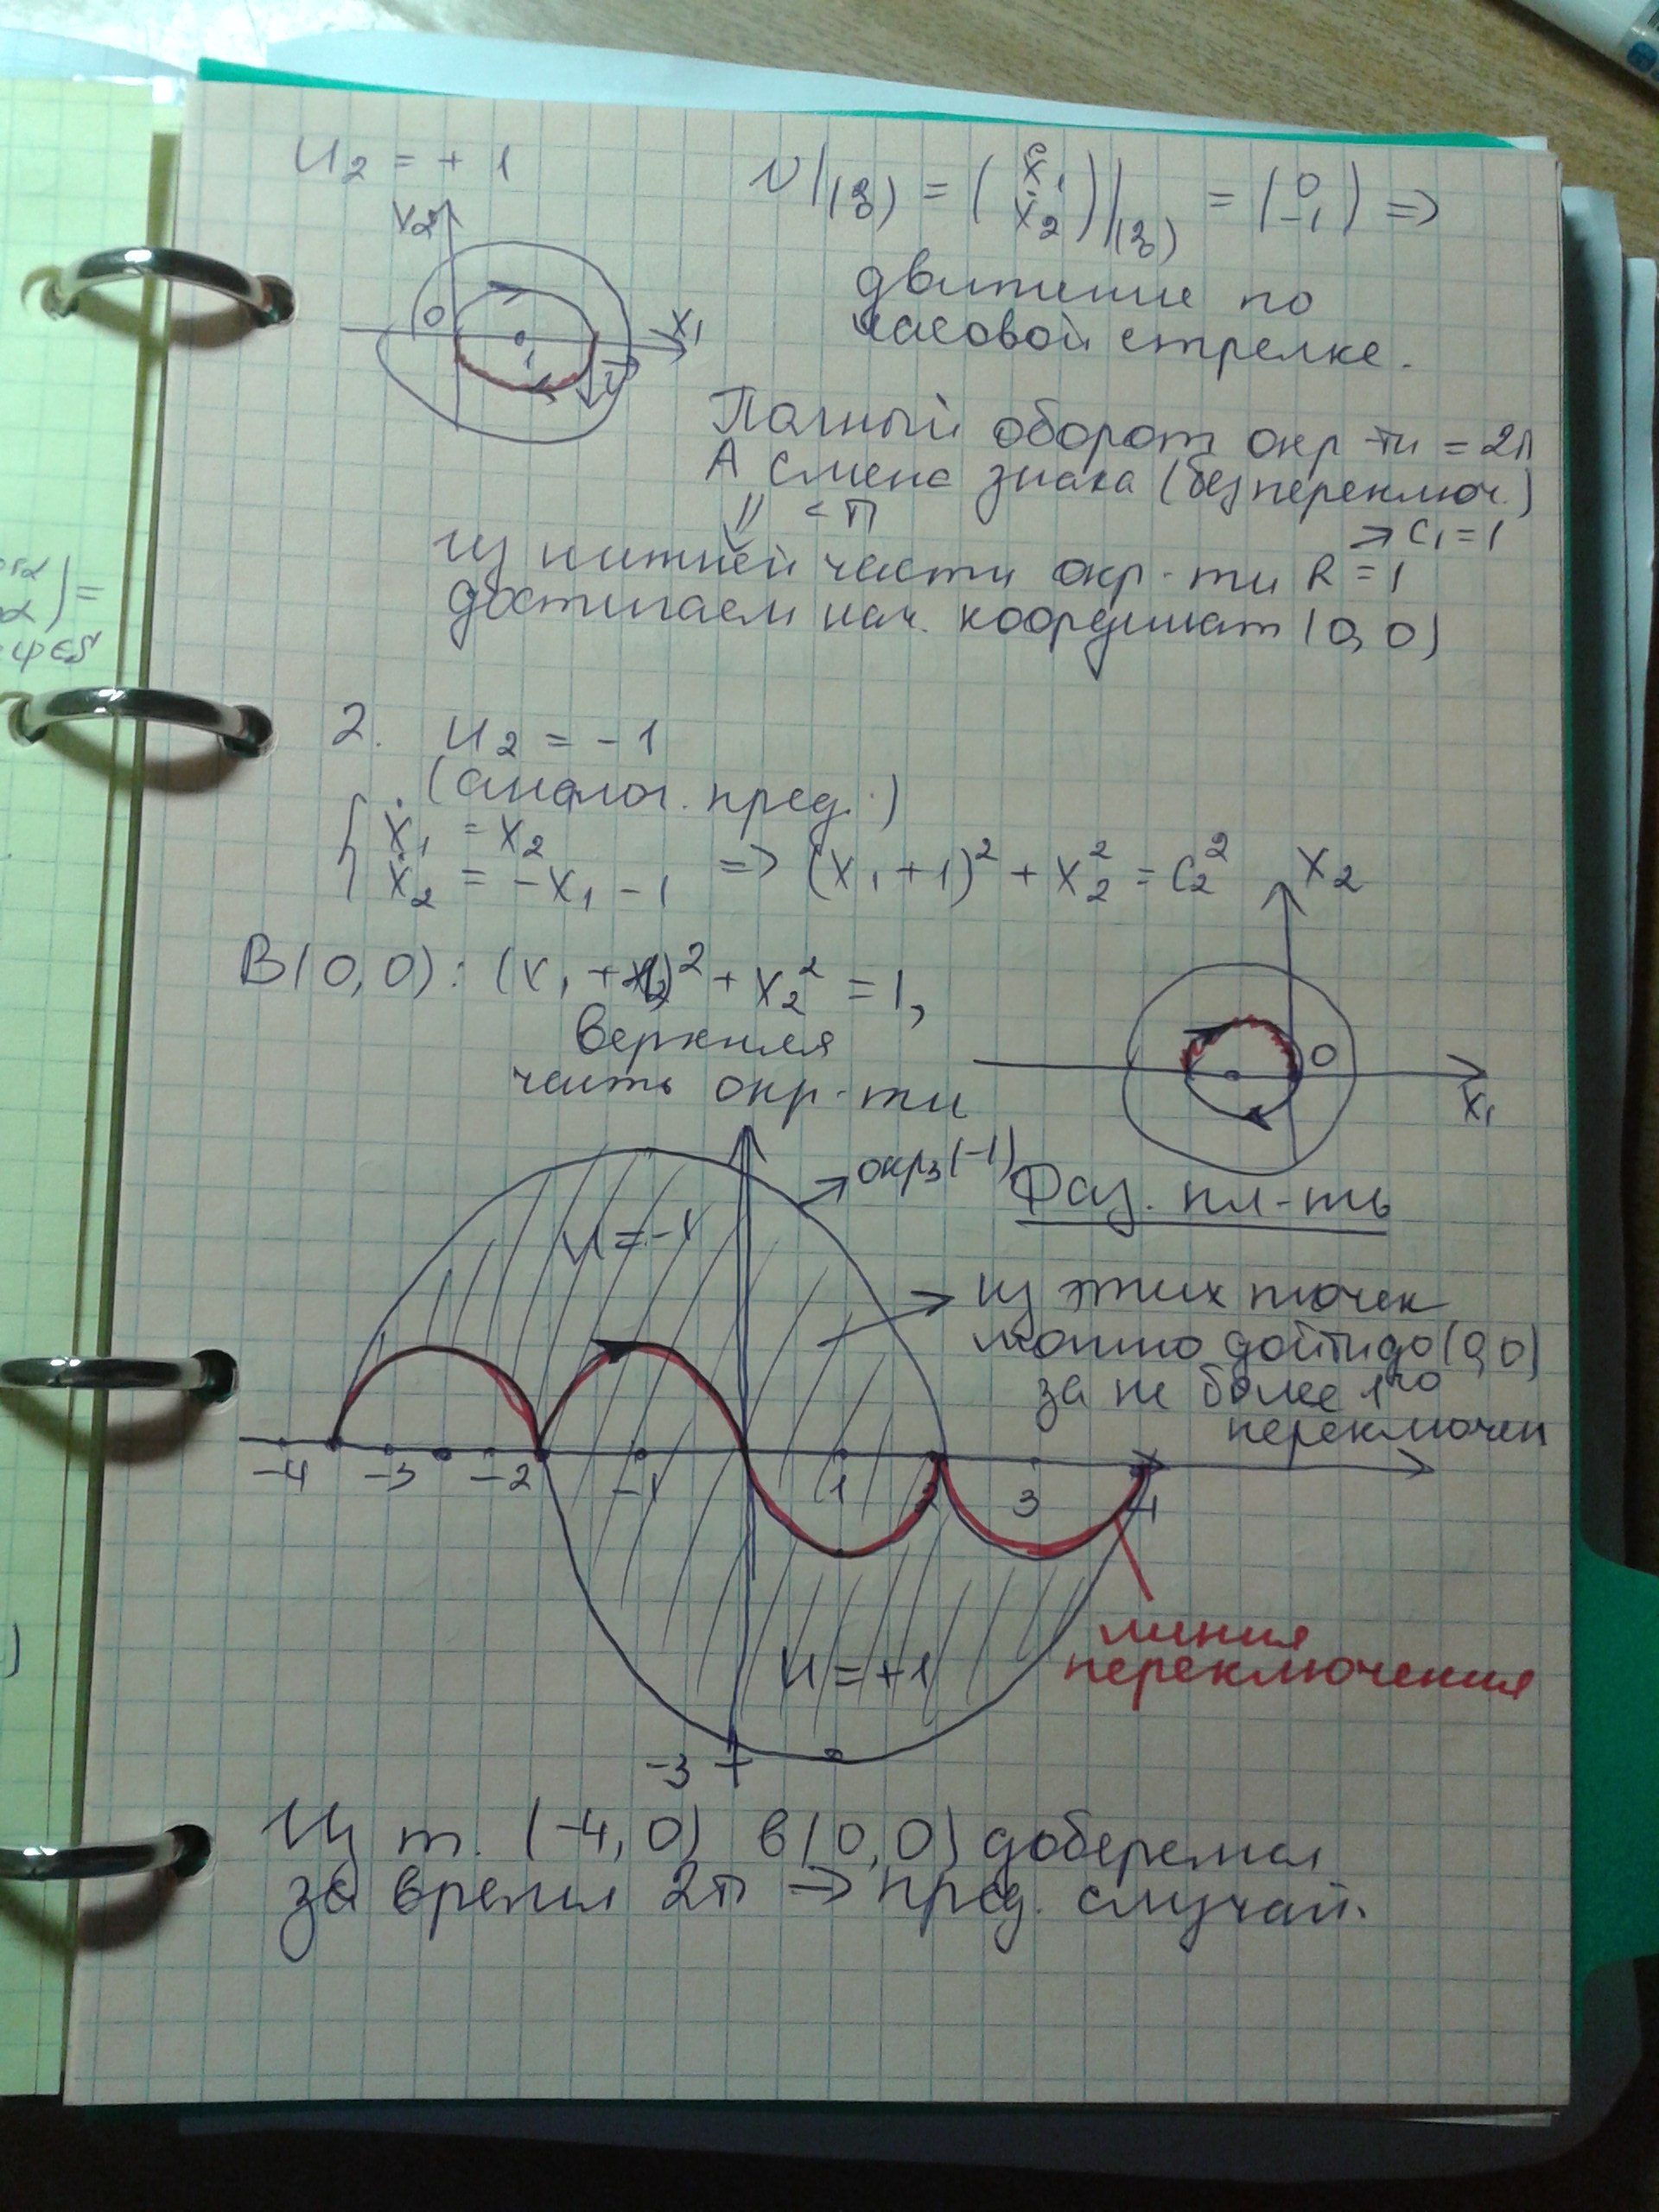 U₂ = + 1
V|₍₀²₎ = (ẋ₁ ẋ₂)|₍₀²₎ = (0 -1) =>
движение по
часовой стрелке.
X₂
0
X₁
1
Полный оборот окр-ти = 2π
А смена знака (без переключ.)
< π
из нижней части окр-ти R = 1
→ C₁ = 1
достигаем нач. координат (0, 0)
2. U₂ = -1
(аналог. пред.)
{ ẋ₁ = x₂
ẋ₂ = -x₁ - 1 => (x₁ + 1)² + x₂² = C₂²
X₂
0
X₁
В (0, 0): (x₁ + 1)² + x₂² = 1,
верхняя
часть окр-ти
окр (-1)
Фаз. пл-ть
U = -1
из этих точек
можно дойти до (0, 0)
за не более 1го
переключен
-4 -3 -2 -1 1 2 3 4
U = +1
линия
переключения
-3
Из т. (-4, 0) в (0, 0) доберемся
за время 2π => пред. случай.